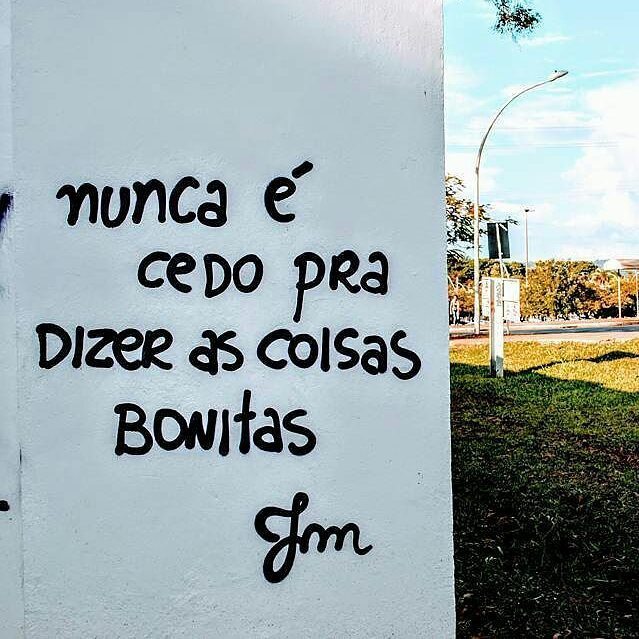 nunca é
cedo pra
Dizer as coisas
Bonitas
Jm